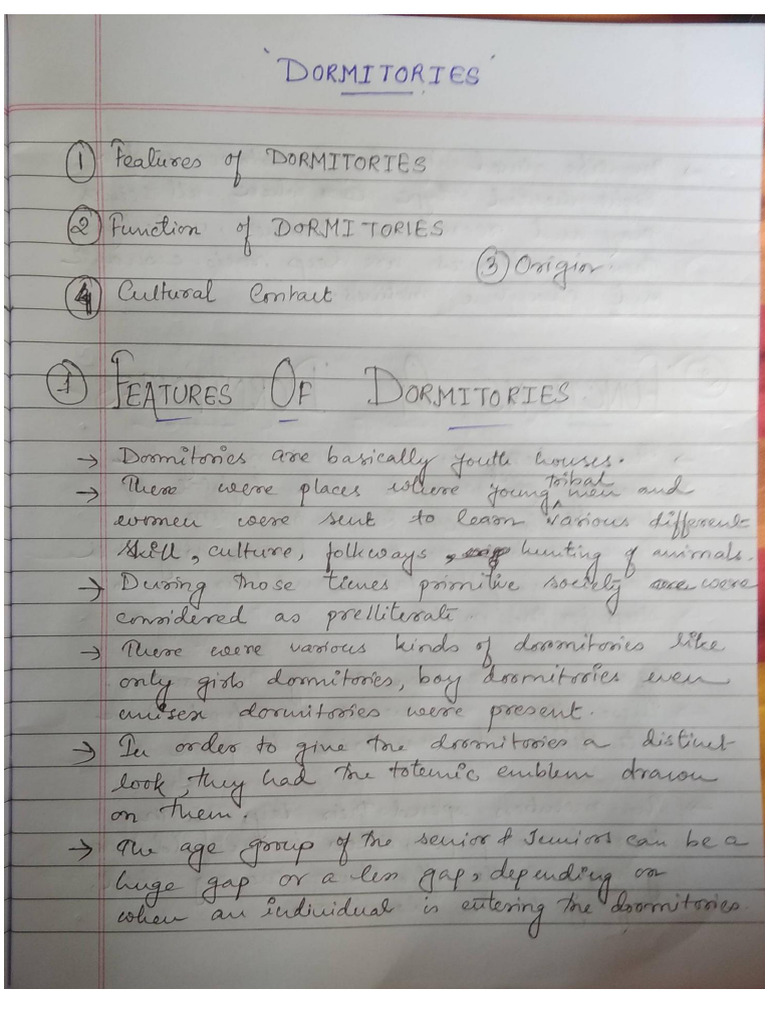 'DORMITORIES'
① Features of DORMITORIES
② Function of DORMITORIES
③ Origin
④ Cultural Contact
① FEATURES OF DORMITORIES
→ Dormitories are basically youth houses.
→ There were places where young tribal men and
women were sent to learn various different
skill, culture, folkways, hunting of animals.
→ During those times primitive society were
considered as prelliterate.
→ There were various kinds of dormitories like
only girls dormitories, boy dormitories even
unisex dormitories were present.
→ In order to give the dormitories a distinct
look, they had the totemic emblem drawn
on them.
→ The age group of the senior & Juniors can be a
huge gap or a less gap, depending on
when an individual is entering the dormitories.